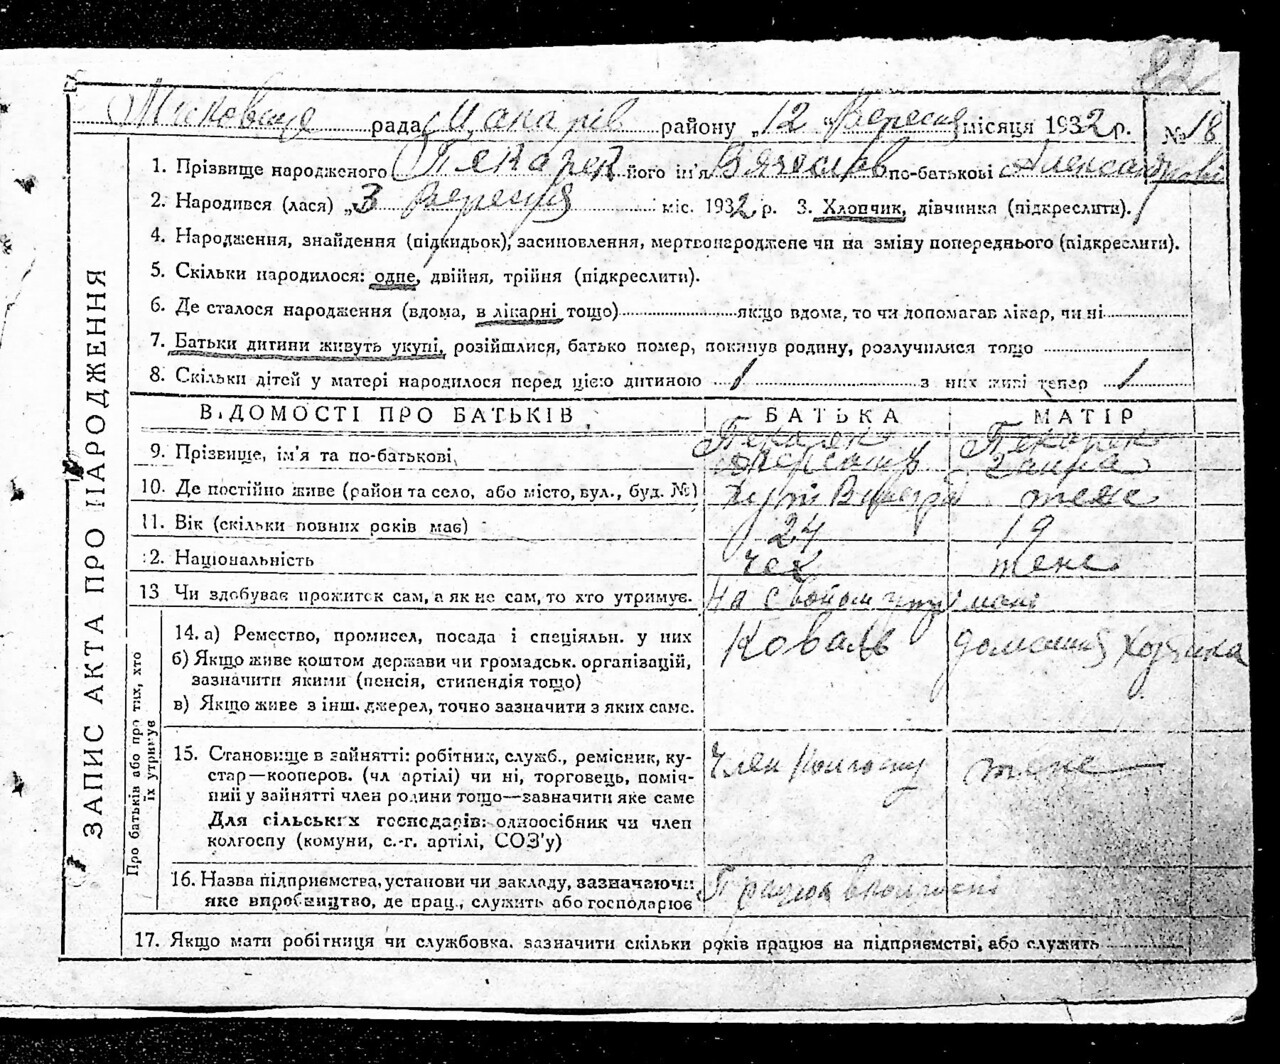 82
рада Макарів району „12 Вересня місяця 1932 р. № 18
1. Прізвище народженого Пекарек його ім'я Вячеслав по-батькові Александрові
2. Народився (лася) „3 Вересня міс. 1932 р. 3. Хлопчик, дівчинка (підкреслити).
4. Народження, знайдення (підкидьок), засиновлення, мертвонароджене чи на зміну попереднього (підкреслити).
5. Скільки народилося: одне, двійня, трійня (підкреслити).
6. Де сталося народження (вдома, в лікарні тощо) якщо вдома, то чи допомагав лікар, чи ні
7. Батьки дитини живуть укупі, розійшлися, батько помер, покинув родину, розлучилися тощо
8. Скільки дітей у матері народилося перед цією дитиною 1 з них живі тепер 1
ВІДОМОСТІ ПРО БАТЬКІВ БАТЬКА МАТІР
Пекарек Пекарек
9. Прізвище, ім'я та по-батькові
10. Де постійно живе (район та село, або місто, вул., буд. №) теж
11. Вік (скільки повних років має) 24 19
12. Національність Чех теже
13 Чи здобуває прожиток сам, а як не сам, то хто утримує. на свойом утримані
14. а) Ремество, промисел, посада і спеціяльн. у них Коваль домашня хозяйка
б) Якщо живе коштом держави чи громадськ. організацій,
зазначити якими (пенсія, стипендія тощо)
в) Якщо живе з інш. джерел, точно зазначити з яких саме.
15. Становище в зайнятті: робітник, служб., ремісник, ку-
стар—кооперов. (чл артілі) чи ні, торговець, поміч-
ний у зайнятті член родини тощо—зазначити яке саме
Член колгоспу теже
Для сільських господарів: одноосібник чи член
колгоспу (комуни, с.-г. артілі, СОЗ'у)
16. Назва підприємства, установи чи закладу, зазначаючи
яке виробництво, де прац., служить або господарює
Працює в колгоспі
17. Якщо мати робітниця чи службовка, зазначити скільки років працює на підприємстві, або служить
ЗАПИС АКТА ПРО НАРОДЖЕННЯ
Про батьків або про тих, хто
їх утримує